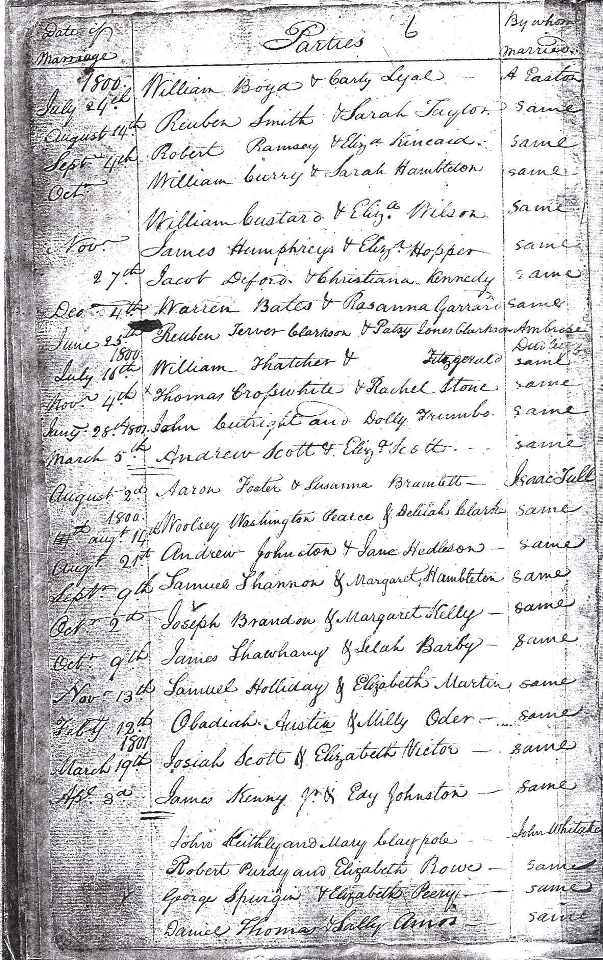 Date of Marriage Parties 6 By whom married
1800
July 24th William Boyd & Carly Lyal — A Easton
August 14th Reuben Smith & Sarah Taylor same
Septr 4th Robert Ramsey & Eliza Kincaid same
Octr William Curry & Sarah Hambleton same
William Custard & Eliza Wilson same
Novr James Humphreys & Eliza Hopper same
27th Jacob Deford & Christiana Kennedy same
Decr 4th Warren Bates & Rosanna Garrard same
June 25th Reuben Clarkson & Patsy Jones Clarkson Ambrose
1800
July 16th William Thatcher & Fitzgerald same
Novr 4th Thomas Crosswhite & Rachel Stone same
Jany 28th 1801 John Cutright and Dolly Trumbo same
March 5th Andrew Scott & Eliza Scott same
August 2d Aaron Foster & Susanna Bramlett — Isaac Tull
1800
augt 14 Woolsey Washington Pearce & Delilah Clark same
Augt 21st Andrew Johnston & Jane Hedleson — same
Septr 9th Samuel Shannon & Margaret Hambleton same
Octr 2d Joseph Brandon & Margaret Kelly — same
Octr 9th James Shawhany & Selah Barby — same
Novr 13th Samuel Holliday & Elizabeth Martin same
Feby 12th Obadiah Austin & Milly Oder — same
1801
March 19th Josiah Scott & Elizabeth Victor — same
Apl 3d James Kenny Jr & Edy Johnston — same
John Keithly and Mary Claypole John Whitake
Robert Purdy and Elizabeth Rowe — same
George Spurgin & Elizabeth Peery — same
Daniel Thomas & Sally Amos same